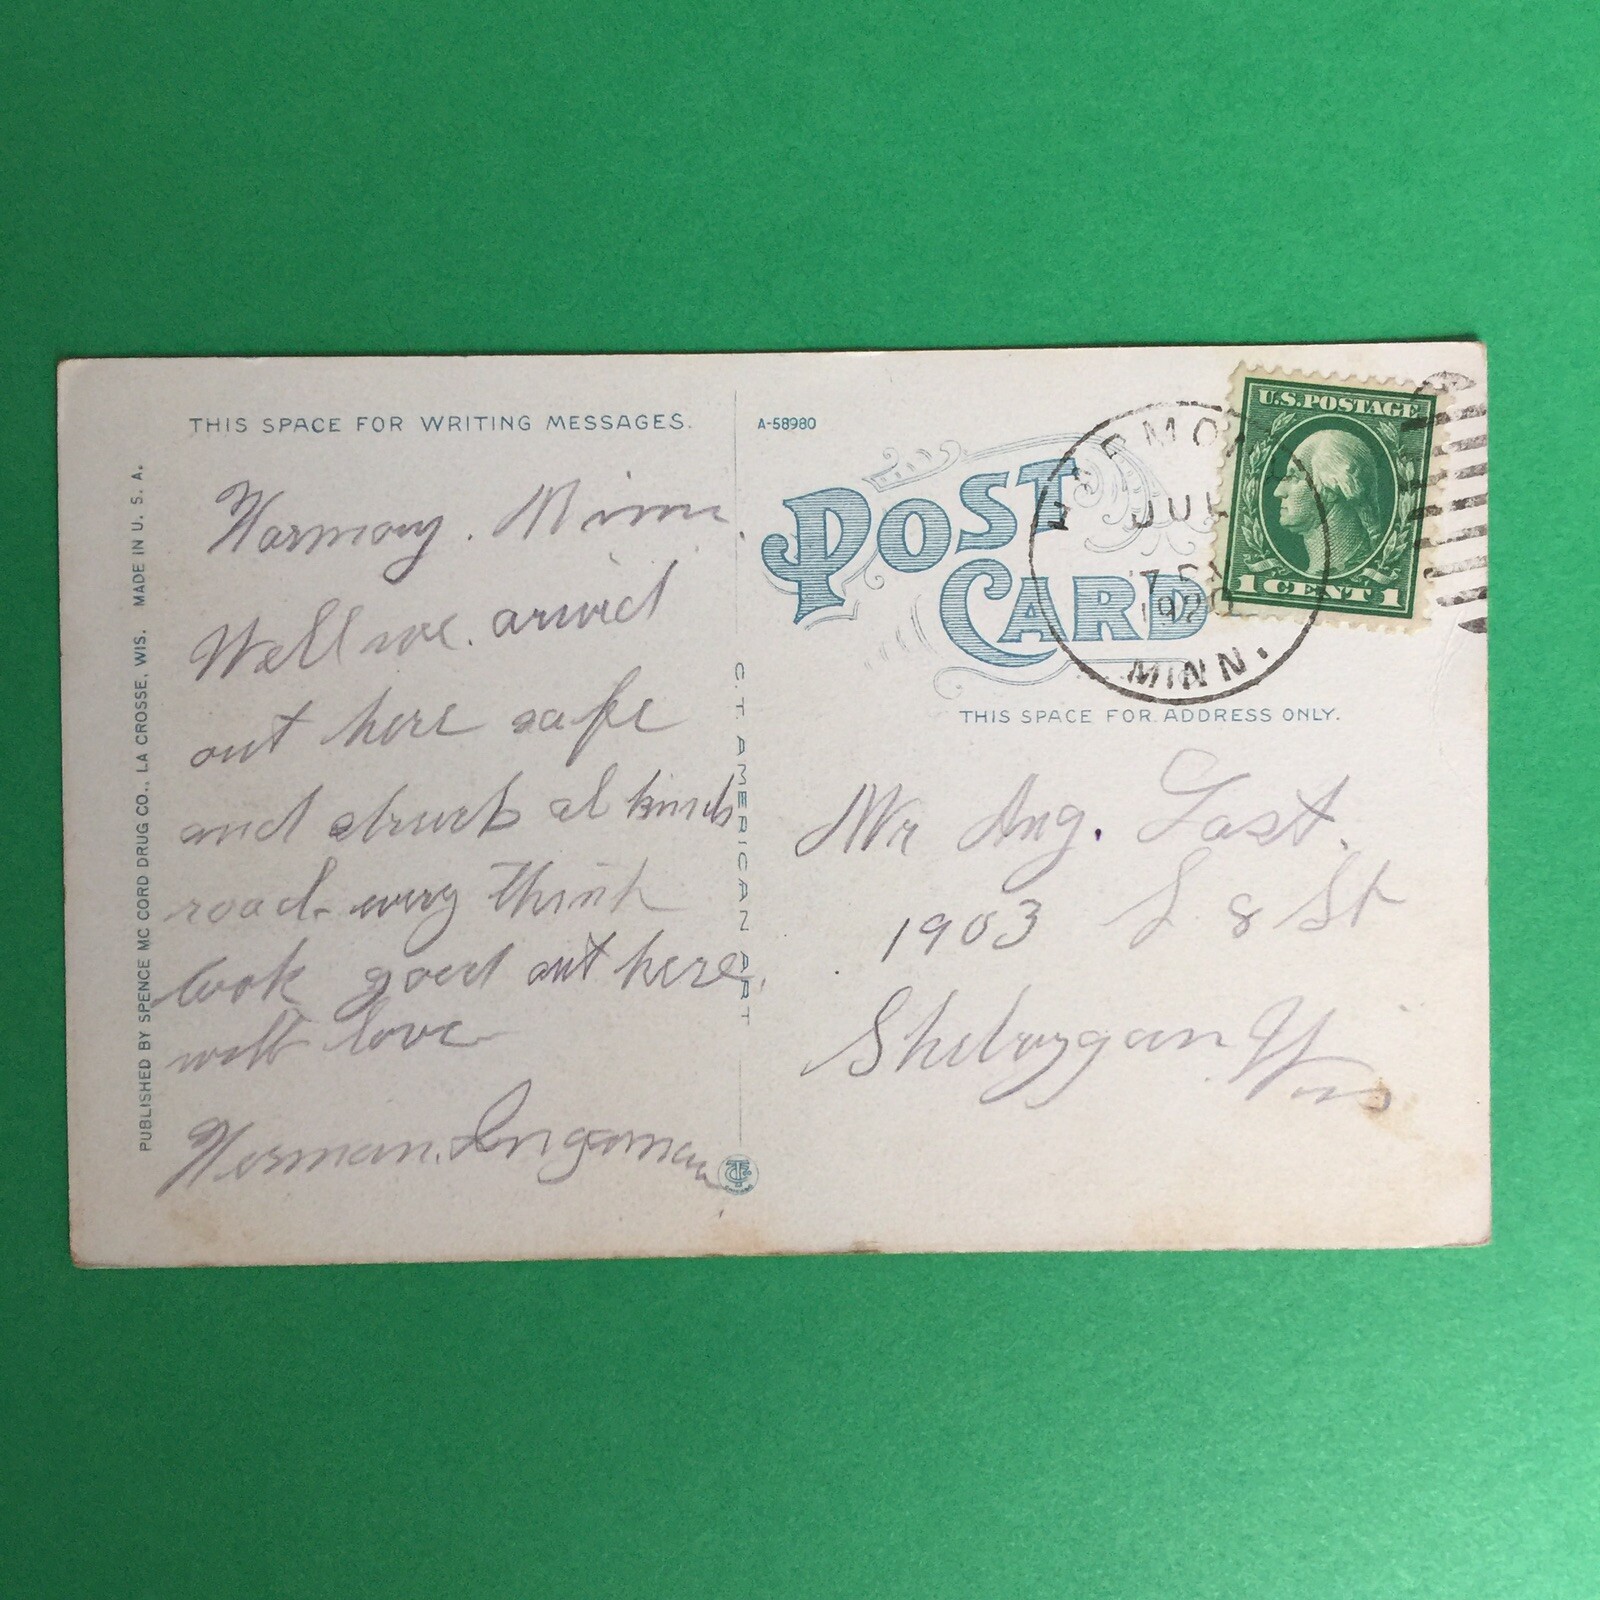 THIS SPACE FOR WRITING MESSAGES.
Harmony. Minn.
Well we. arivid
out here safe
and struck al kinds
road. evry think
look good out here.
with love
Herman.
PUBLISHED BY SPENCE MC CORD DRUG CO., LA CROSSE, WIS. MADE IN U. S. A.
C. T. AMERICAN ART
A-58980
POST CARD
JUL
1920
MINN.
U.S. POSTAGE
1 CENT 1
THIS SPACE FOR ADDRESS ONLY.
Mr Aug. Last.
1903 S 8 St
Sheboygan Wis